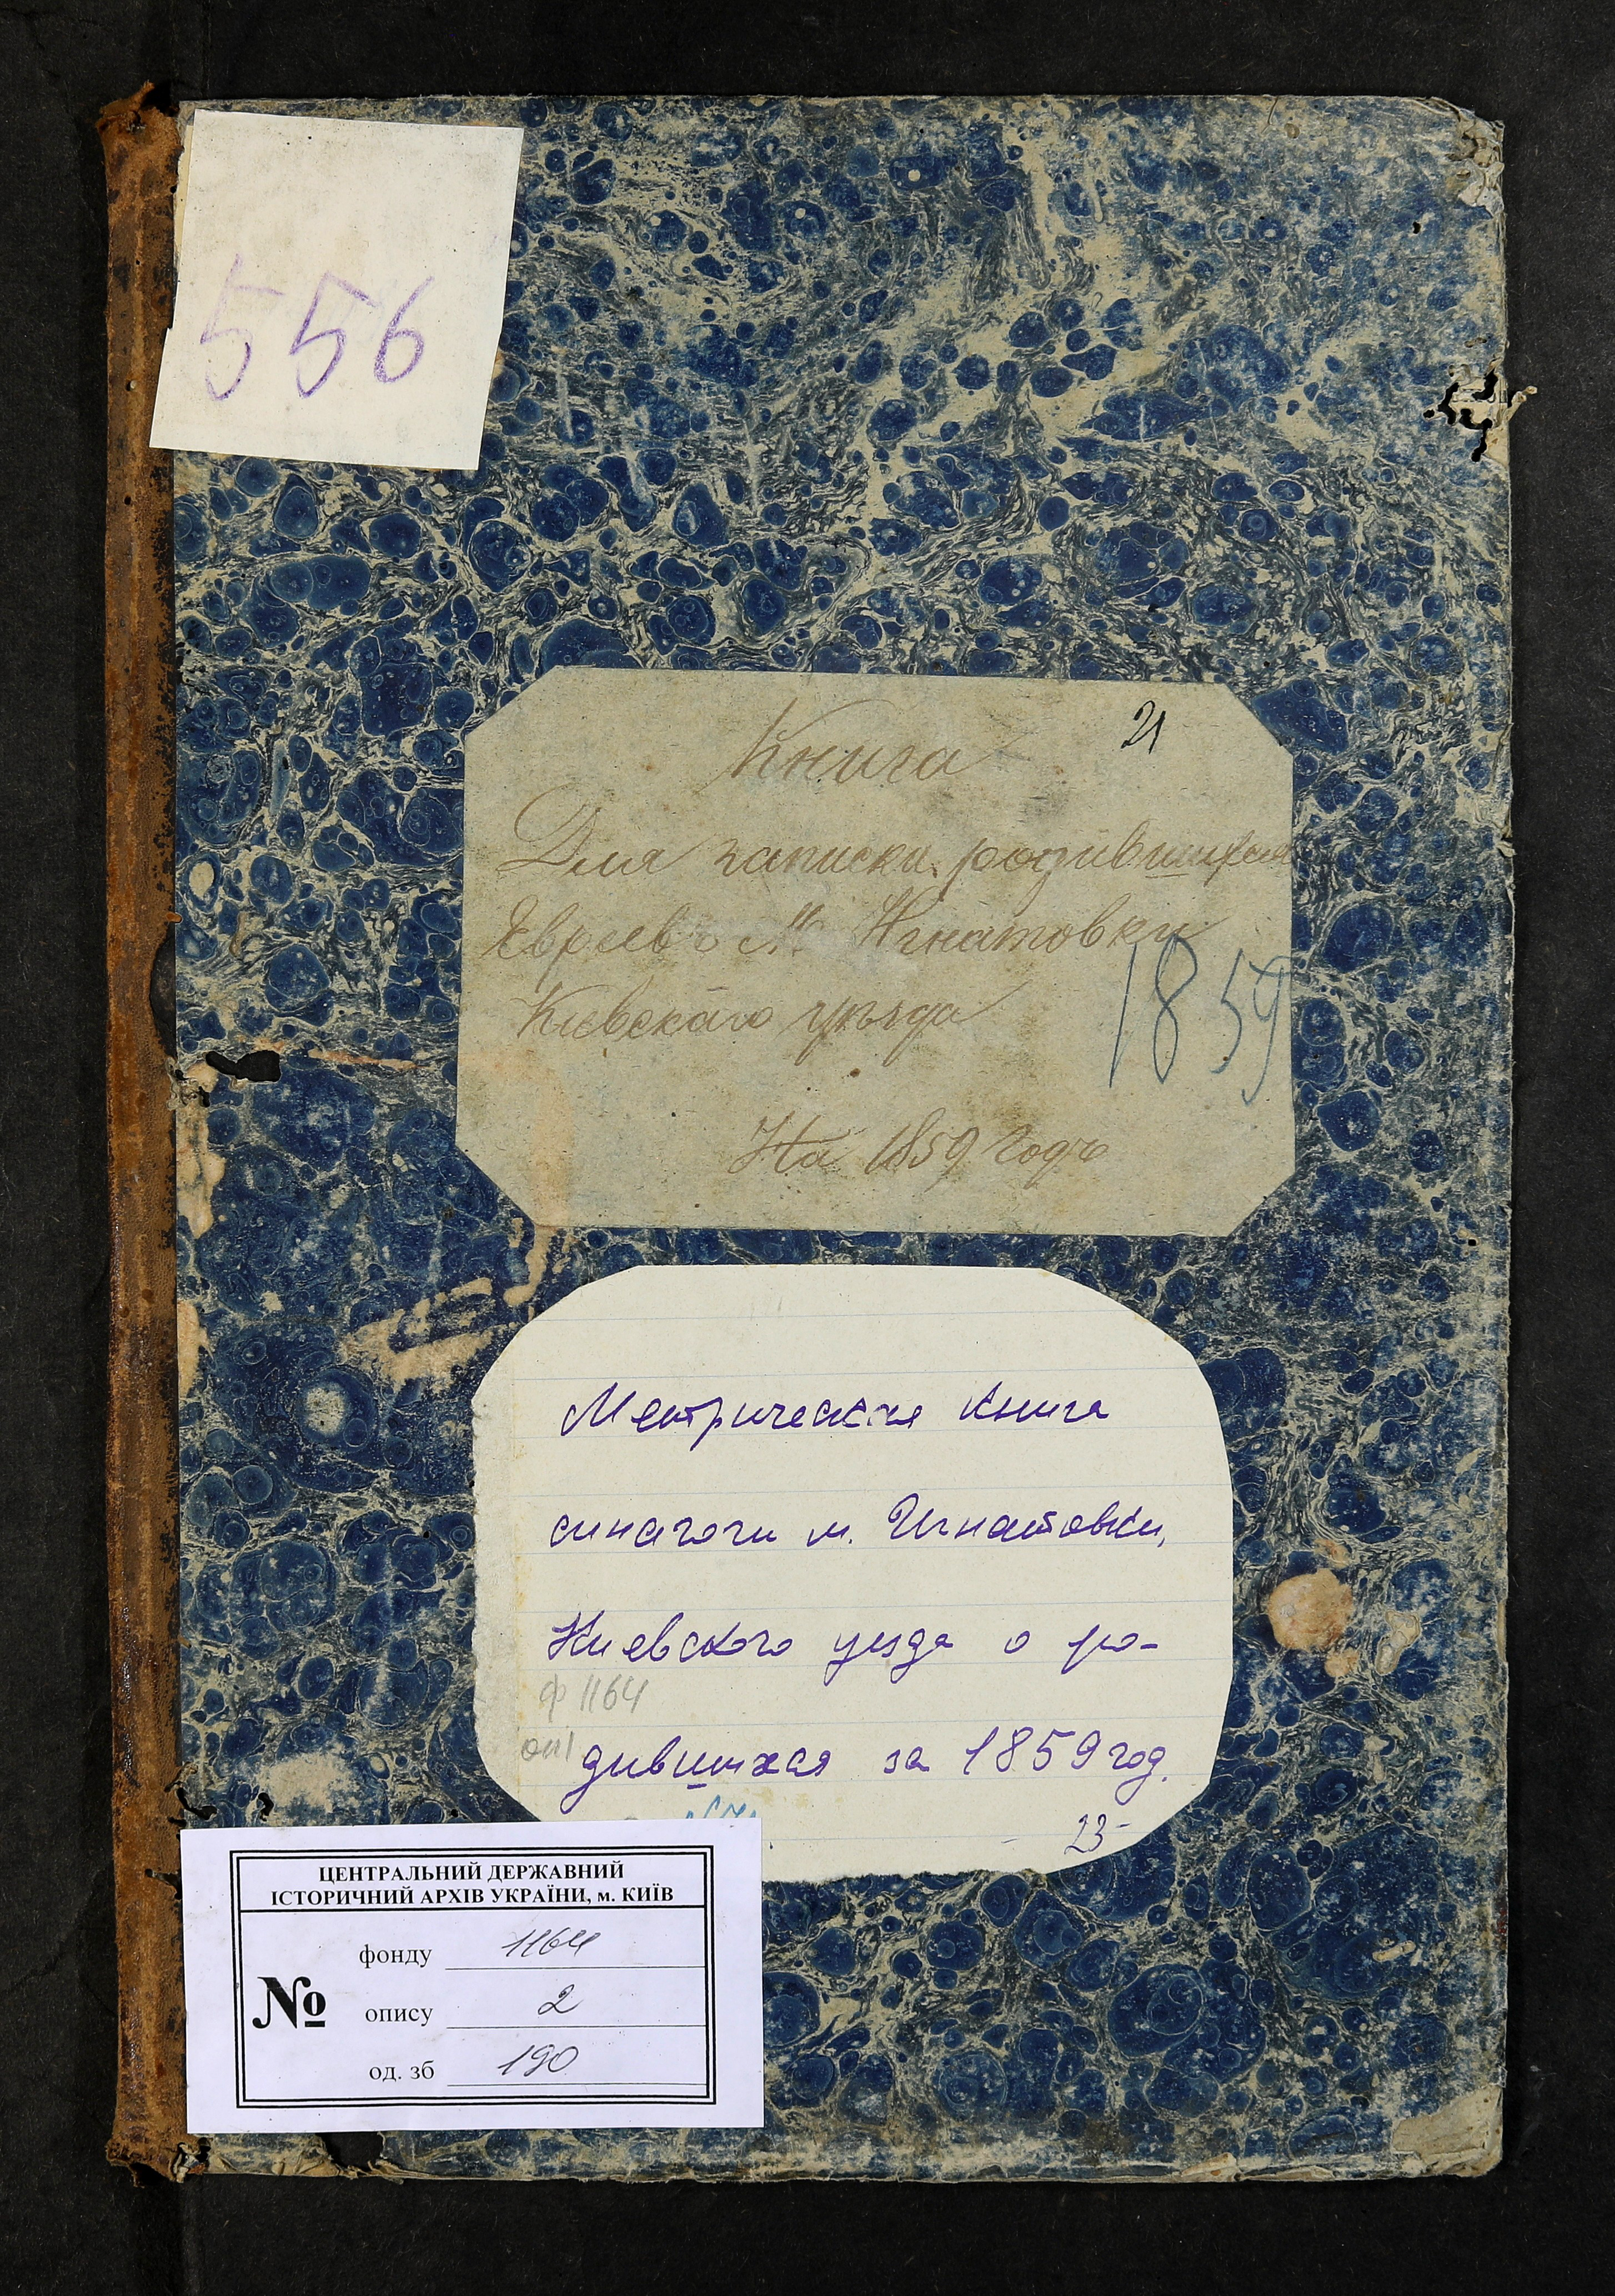 556
21
Книга
Для записки родившихся
Евреевъ М. Игнатовки
Кіевскаго уѣзда
1859
На 1859 годъ
Метрическая книга
синагоги м. Игнатовки,
Киевского уезда о ро-
ф 1164
оп 1
дившихся за 1859 год.
23
ЦЕНТРАЛЬНИЙ ДЕРЖАВНИЙ
ІСТОРИЧНИЙ АРХІВ УКРАЇНИ, м. КИЇВ
№
фонду 1164
опису 2
од. зб 190